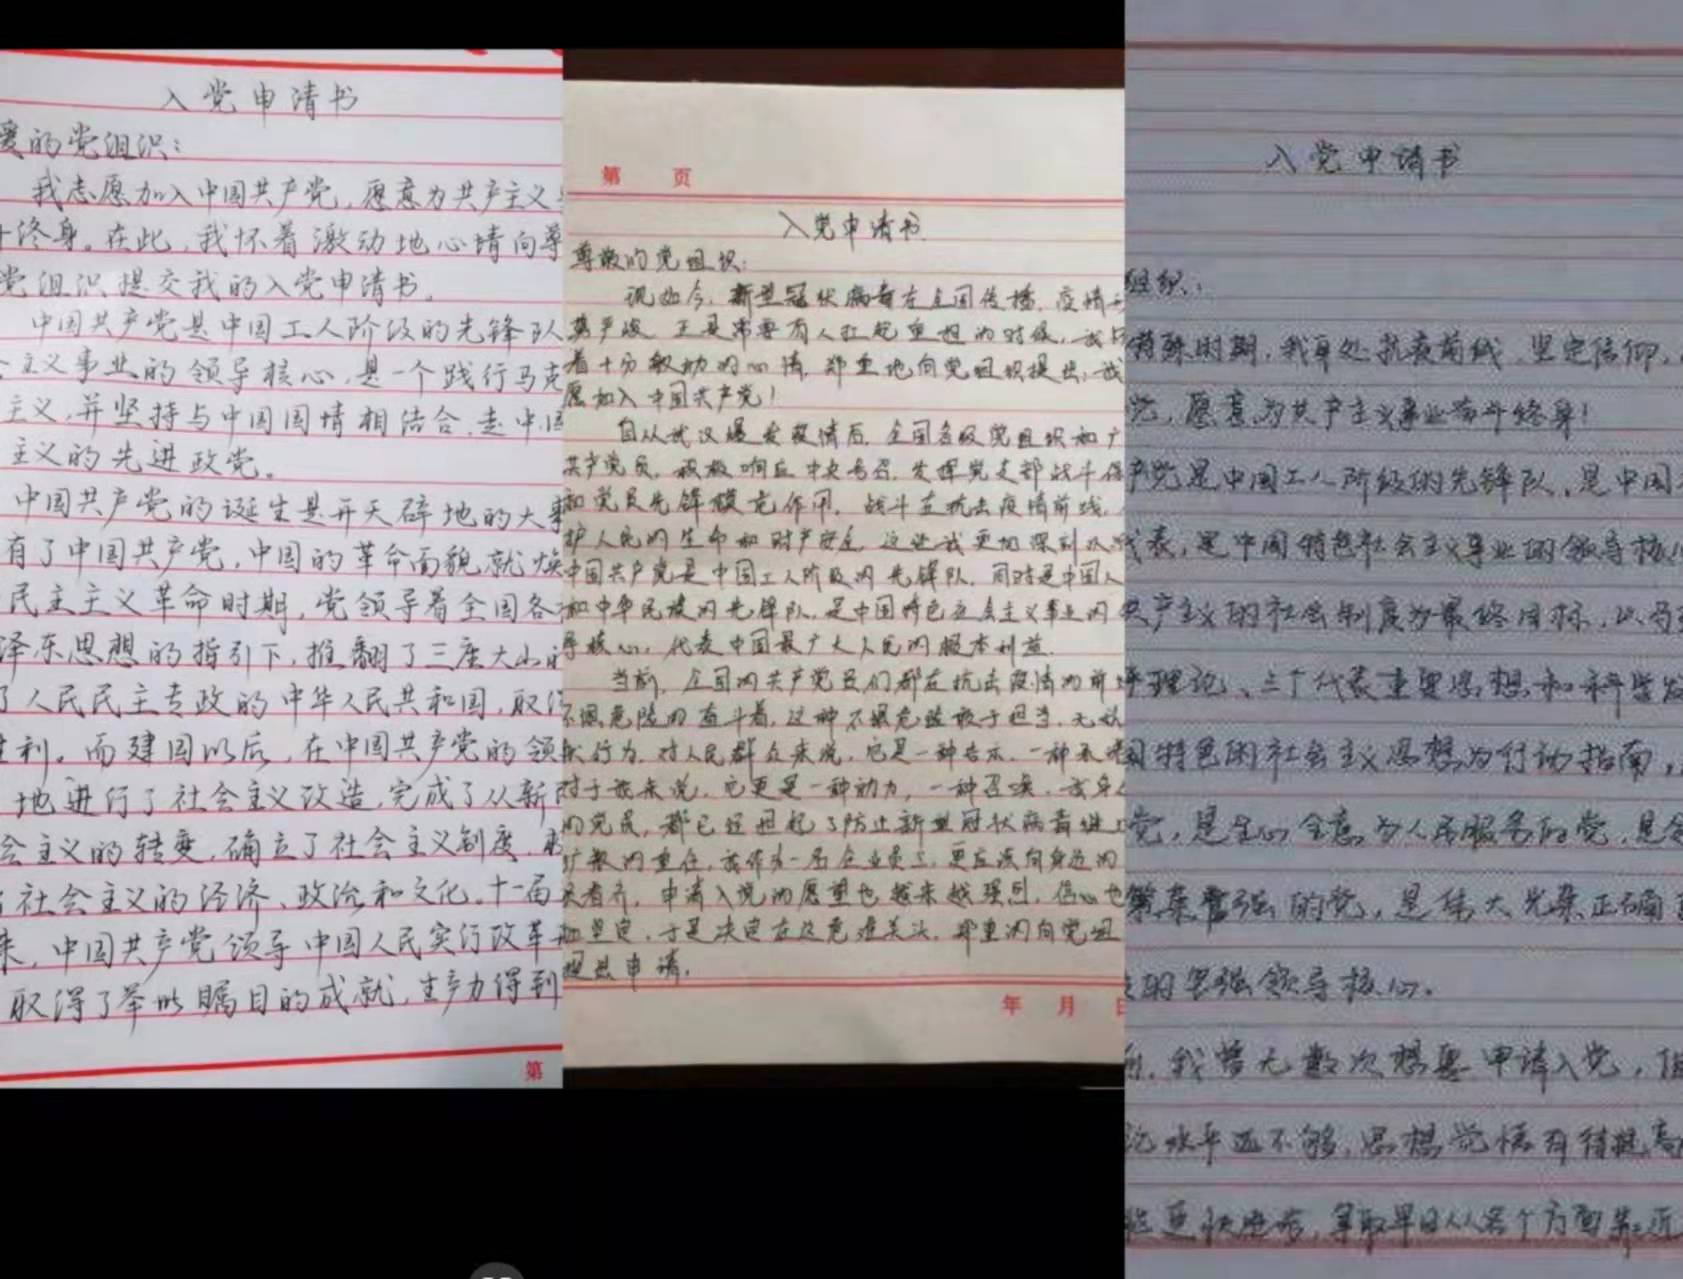 入党申请书
爱的党组织：
我志愿加入中国共产党，愿意为共产主义
斗终身。在此，我怀着激动地心情向尊
党组织提交我的入党申请书。
中国共产党是中国工人阶级的先锋队
会主义事业的领导核心，是一个践行马克
主义，并坚持与中国国情相结合，走中国
主义的先进政党。
中国共产党的诞生是开天辟地的大事
有了中国共产党，中国的革命面貌就焕
民主主义革命时期，党领导着全国各
泽东思想的指引下，推翻了三座大山的
了人民民主专政的中华人民共和国，取得
胜利。而建国以后，在中国共产党的领
地进行了社会主义改造，完成了从新
会主义的转变，确立了社会主义制度，
社会主义的经济、政治和文化。十一届
来，中国共产党领导中国人民实行改革
取得了举世瞩目的成就，生产力得到
第
第 页
入党申请书
尊敬的党组织：
现如今，新型冠状病毒在全国传播，疫情
势严峻，正是需要有人扛起重担的时候，我
着十分激动的心情，郑重地向党组织提出：我
愿加入中国共产党！
自从武汉爆发疫情后，全国各级党组织和广
共产党员，积极响应中央号召，发挥党支部战斗保
和党员先锋模范作用，战斗在抗击疫情前线，
护人民的生命和财产安全，这些我更加深刻认
中国共产党是中国工人阶级的先锋队，同时是中国人
和中华民族的先锋队，是中国特色社会主义事业的
导核心，代表中国最广大人民的根本利益。
当前，全国的共产党员们都在抗击疫情的前
不惧危险的奋斗着，这种不惧危险敢于担当、无私
献行为，对人民群众来说，它是一种告示，一种承诺
对于我来说，它更是一种动力，一种召唤，我身
的党员，都已经担起了防止新型冠状病毒继
扩散的重任，我作为一名企业员工，更应该向身边的
员看齐，申请入党的愿望也越来越强烈，信心也
加坚定，于是决定在这危难关头，郑重的向党组
提出申请。
年 月 日
入党申请书
组织：
特殊时期，我身处抗疫前线，坚定信仰，
党，愿意为共产主义事业奋斗终身！
产党是中国工人阶级的先锋队，是中国
代表，是中国特色社会主义事业的领导核心
共产主义的社会制度为最终目标，以马
平理论、三个代表重要思想和科学发
国特色的社会主义思想为行动指南，
党，是全心全意为人民服务的党，是
繁荣富强的党，是伟大光荣正确
的坚强领导核心。
我曾无数次想要申请入党，但
论水平还不够，思想觉悟有待提高
争取早日从各个方面靠近